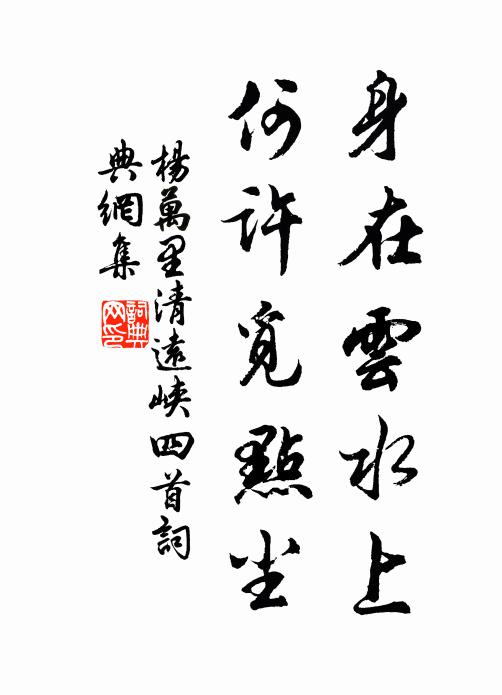 身在雲水上
何許覓點尘
楊萬里清遠峽四首詞
典網集
詞典网印